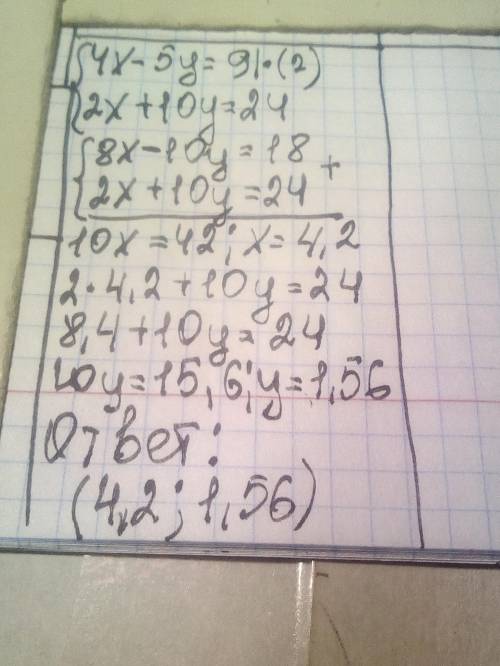 {4x-5y=9|·(2)
{2x+10y=24
{8x-10y=18 +
{2x+10y=24
10x=42; x=4,2
2·4,2+10y=24
8,4+10y=24
10y=15,6; y=1,56
Ответ:
(4,2; 1,56)